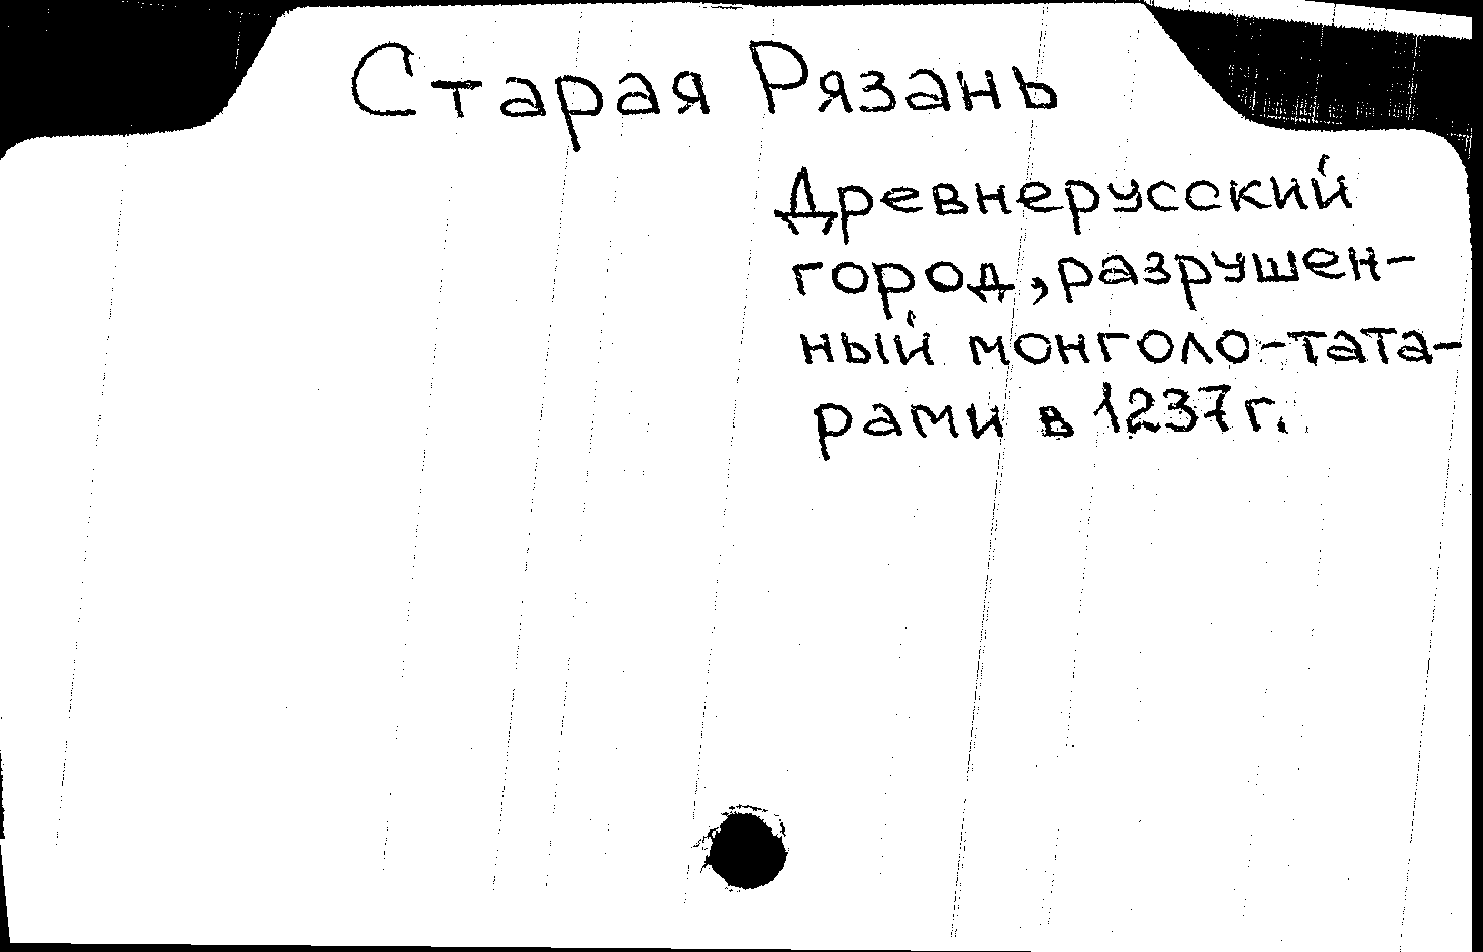 Старая Рязань
Древнерусский
город, разрушен-
ный монголо-тата-
рами в 1237 г.